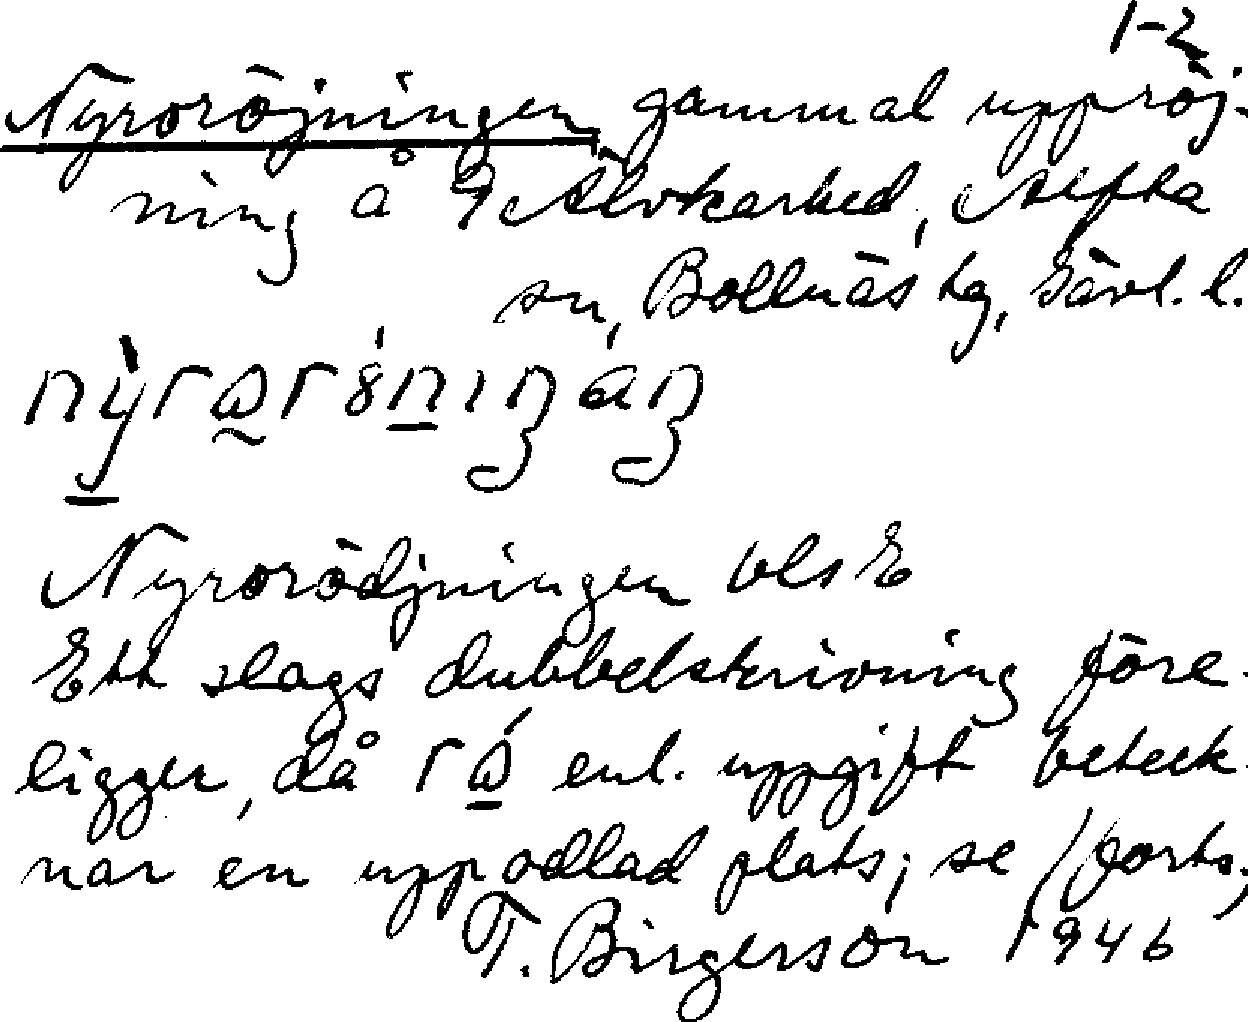 1-2
Nyroröjningen, gammal uppröj-
ning å Älvkarhed, Alfta
sn, Bollnäs tg, Gävl. l.
Nyrorödjningen bls E
Ett slags dubbelskrivning före-
ligger, då enl. uppgift beteck-
nar en uppodlad plats; se /forts./
T. Birgerson 1946